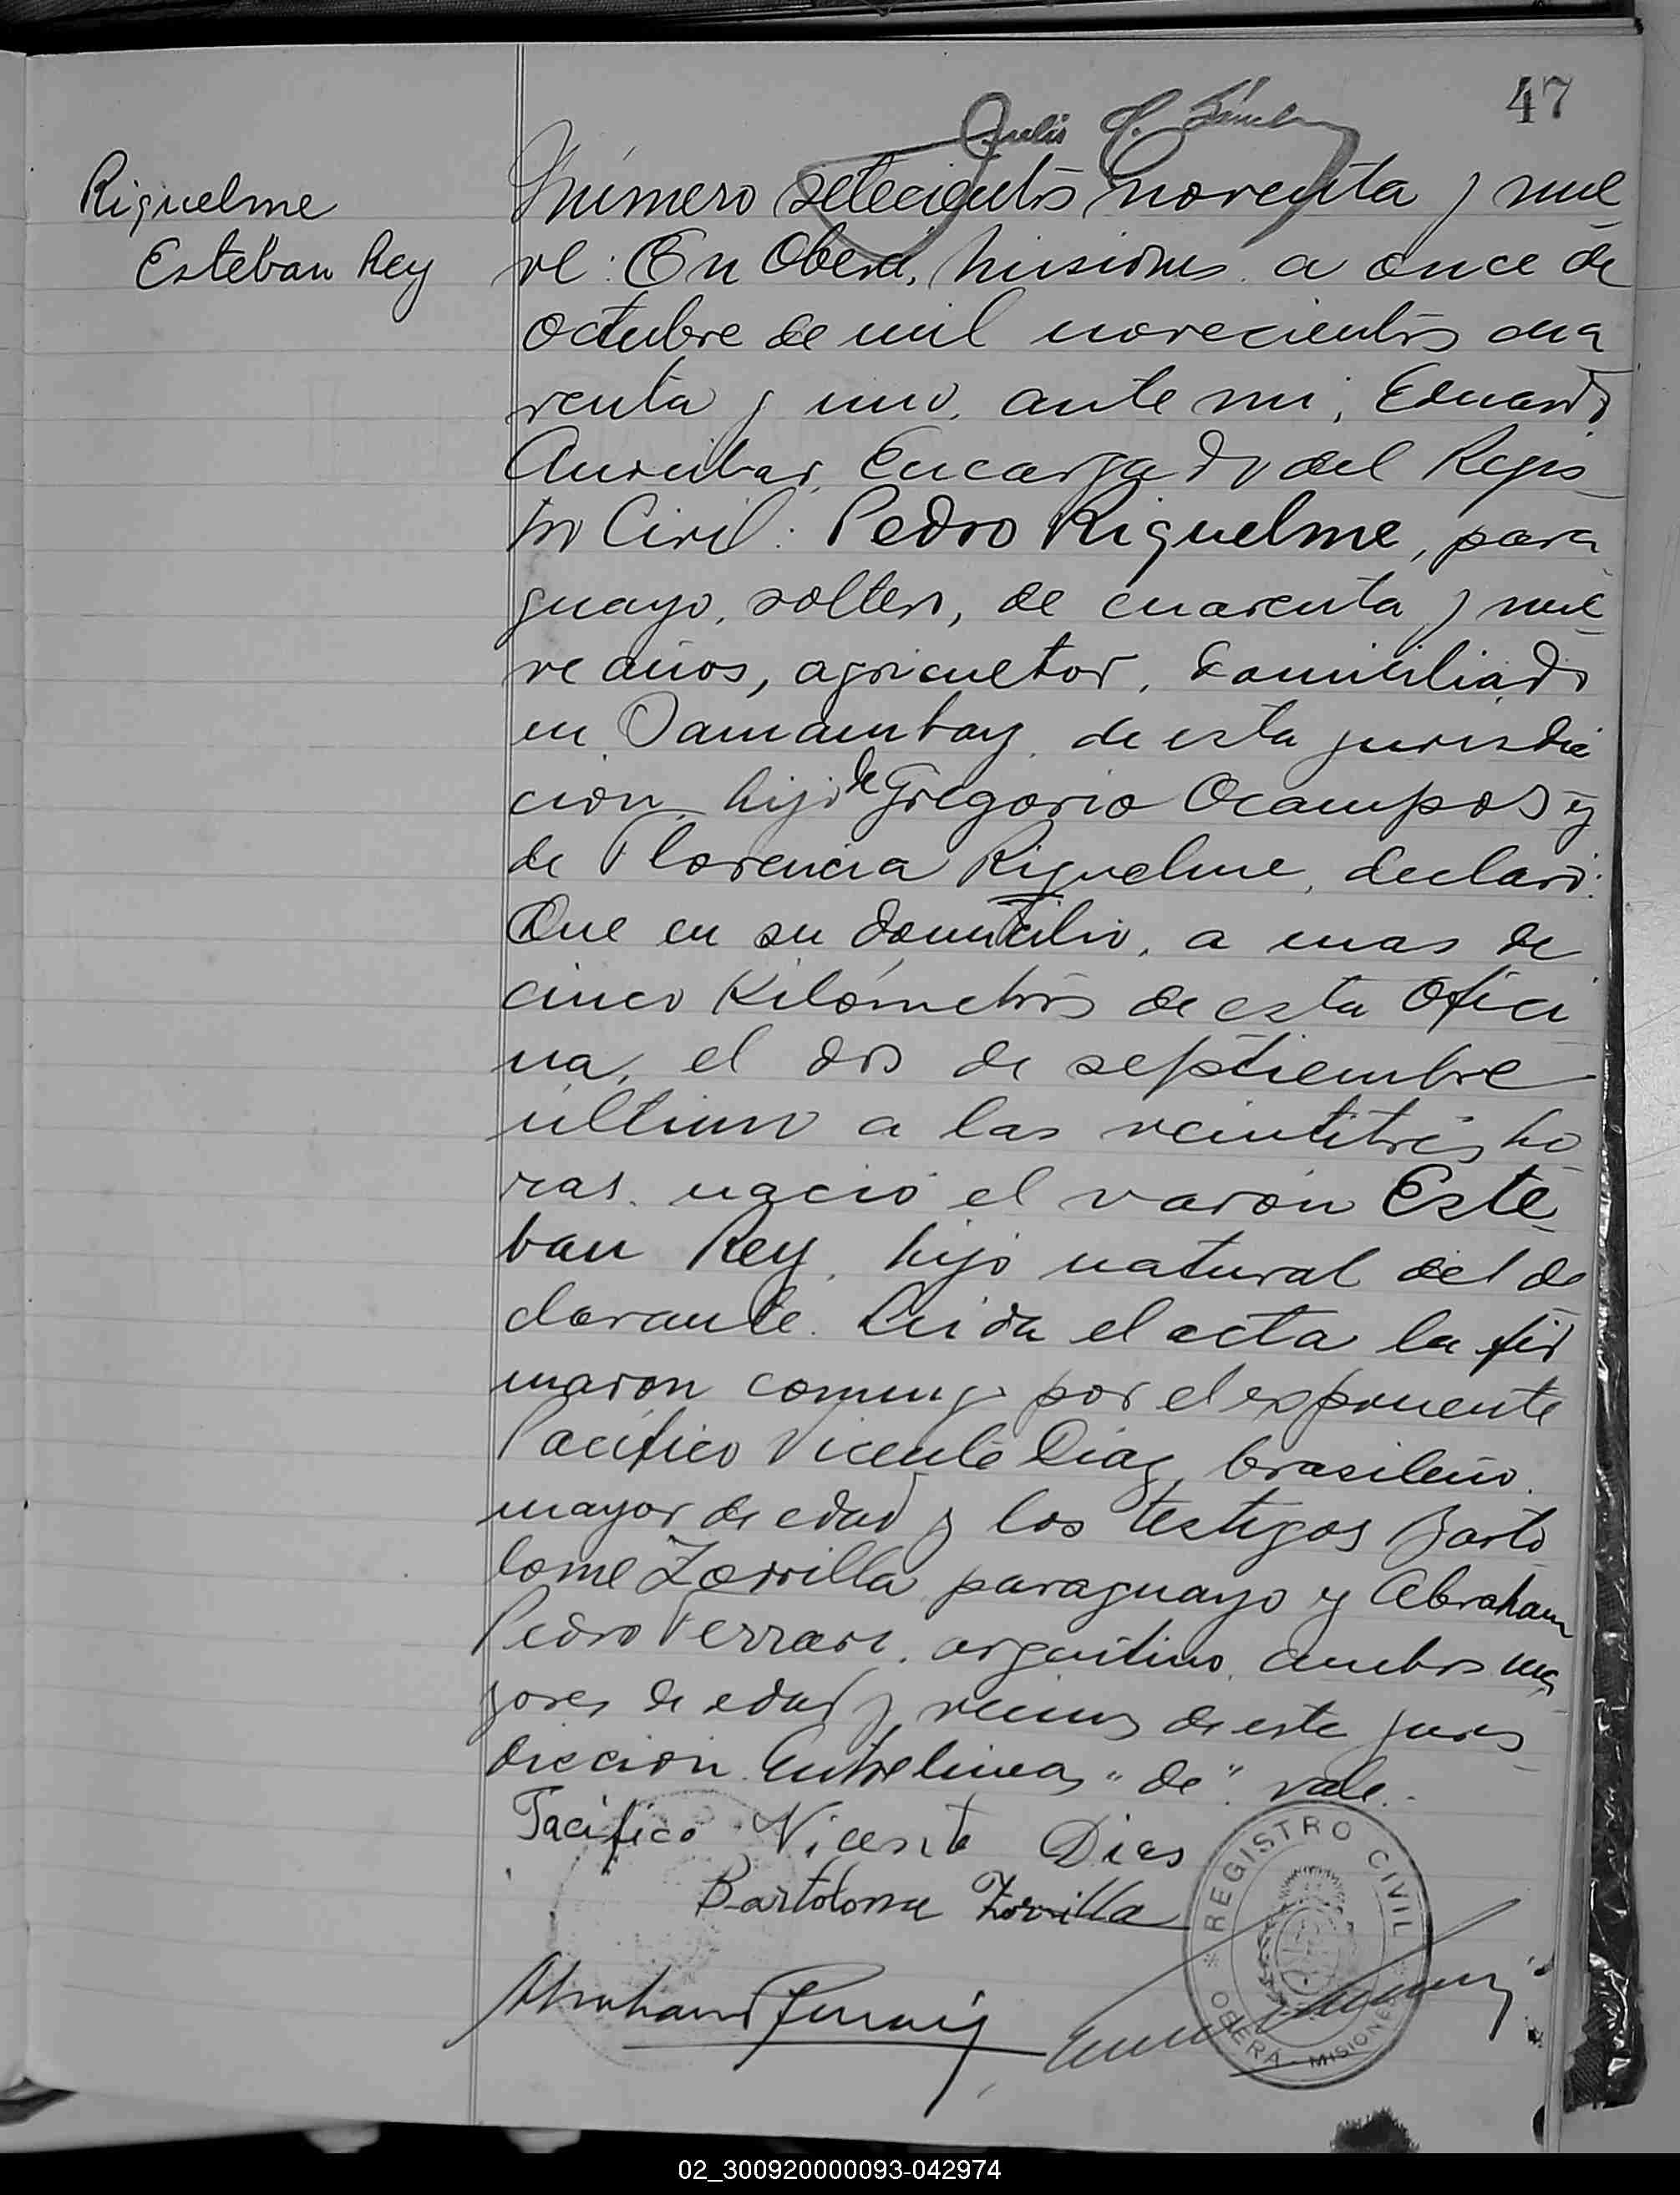 47
Riquelme
Esteban Rey
Número setecientos noventa y nue
ve: En Oberá, Misiones a once de
octubre de mil novecientos cua
renta y uno, ante mi, Eduardo
Encargado del Regis
tro Civil: Pedro Riquelme, para
guayo, soltero, de cuarenta y nue
ve años, agricultor, domiciliado
en Samambay, de esta jurisdic
ción, hijo de Gregorio Ocampos y
de Florencia Riquelme, declaró:
Que en su domicilio, a mas de
cinco Kilómetros de esta Ofici
na, el dos de septiembre
último a las veintitrés ho
ras nació el varón Este
ban Rey, hijo natural del de
clarante. Leida el acta la fir
maron conmigo por el exponente
Pacífico Vicente Diaz, brasileño,
mayor de edad y los testigos Barto
lome Zorrilla paraguayo y Abraham
Pedro Ferrari, argentino, ambos ma
yores de edad y vecinos de esta juris
diccion. Entrelineas "de" vale.
Pacífico Vicente Dias
Bartolome Zorrilla
Abraham Ferrari
REGISTRO CIVIL
OBERA - MISIONES
02_300920000093-042974